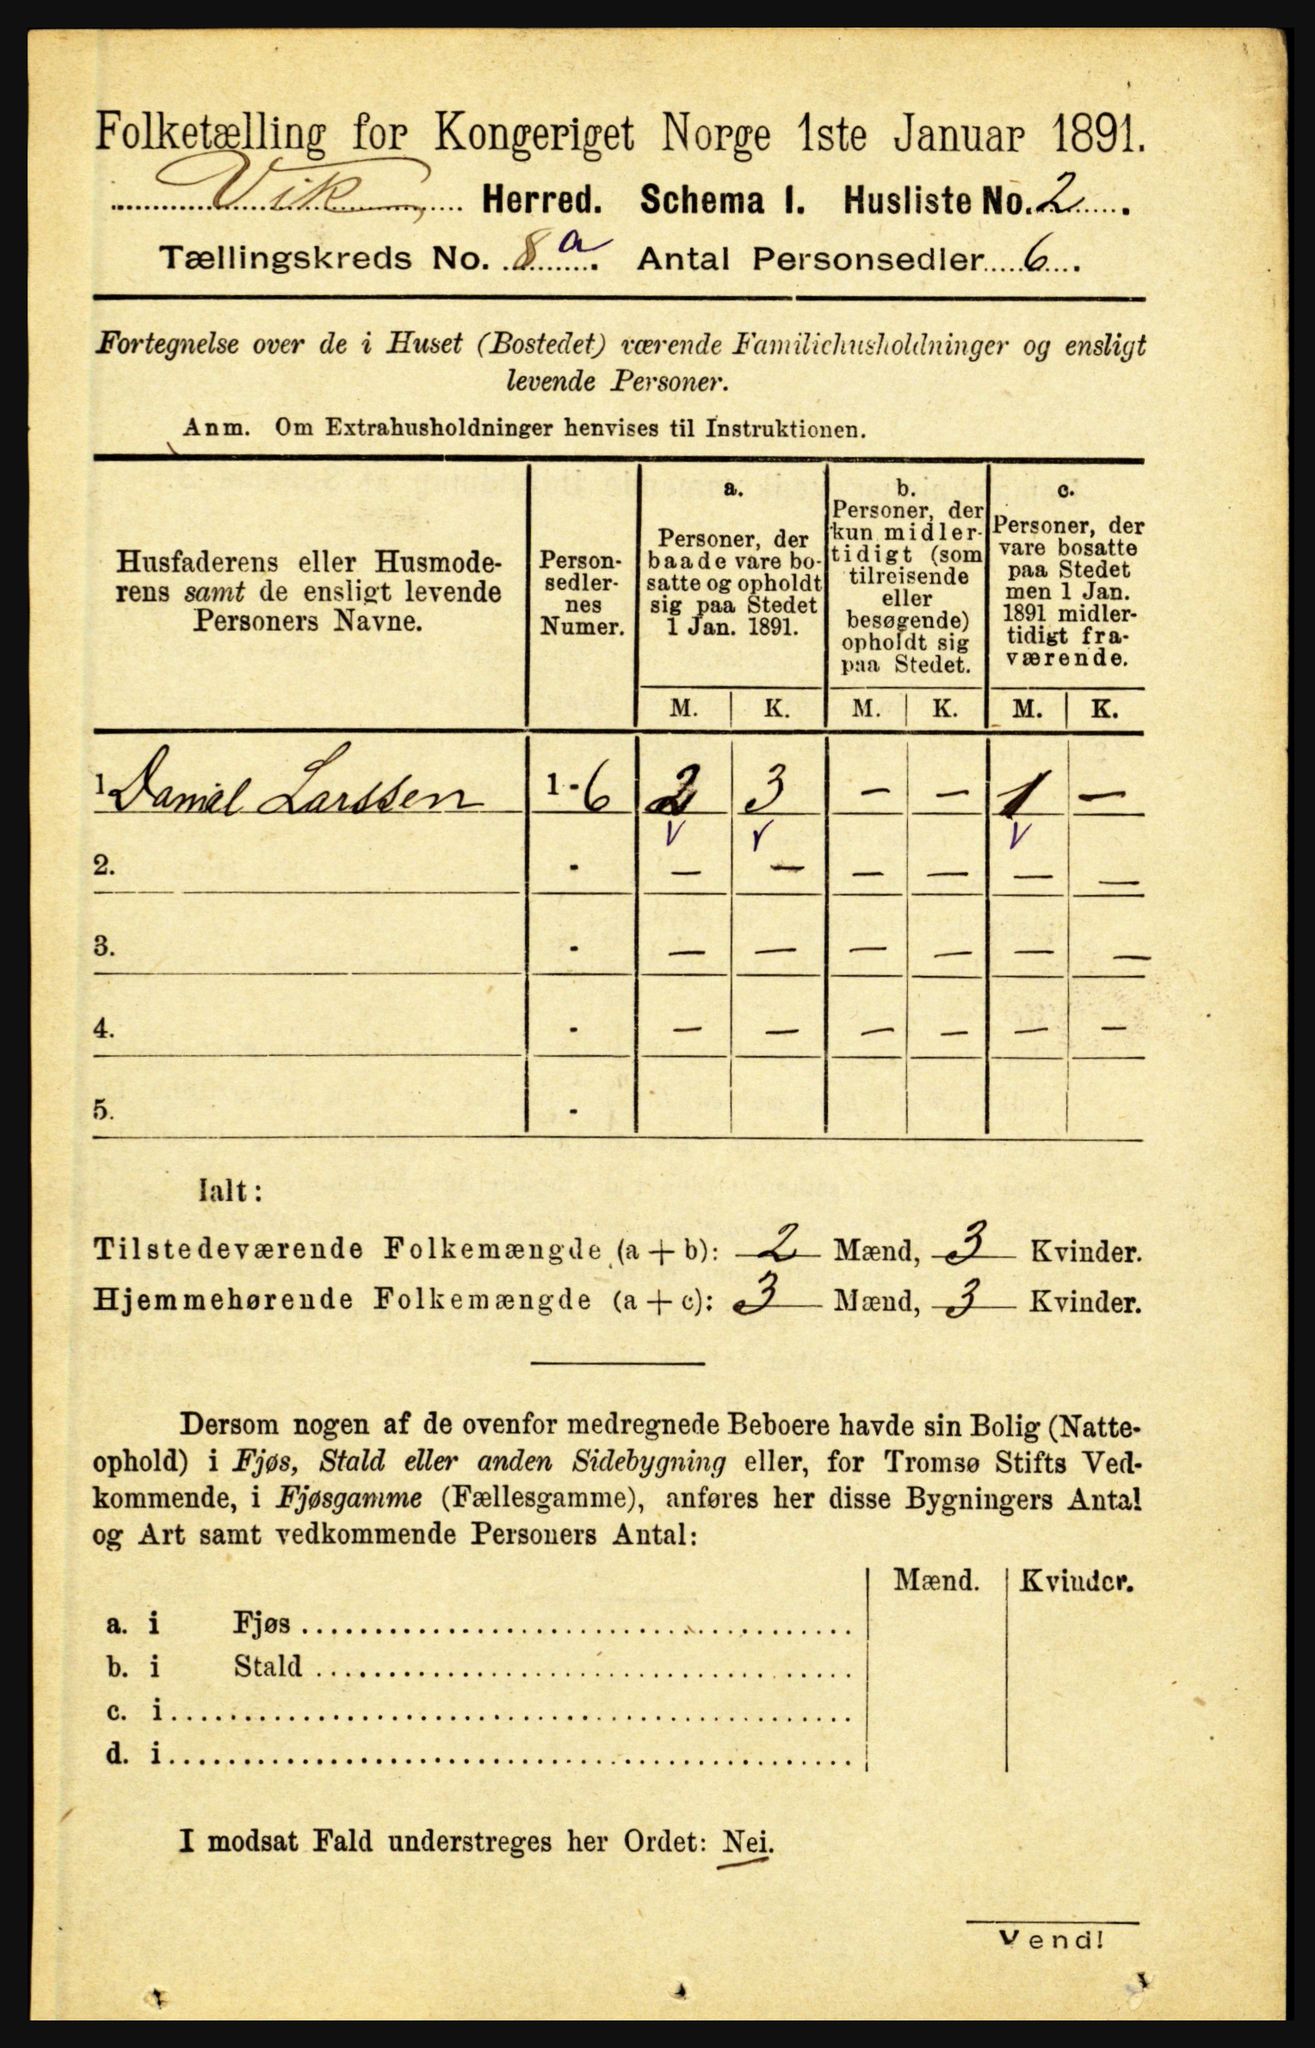 Folketælling for Kongeriget Norge 1ste Januar 1891.
Vik Herred. Schema I. Husliste No. 2.
Tællingskreds No. 8 a. Antal Personsedler 6.
Fortegnelse over de i Huset (Bostedet) værende Familiehusholdninger og ensligt
levende Personer.
Anm. Om Extrahusholdninger henvises til Instruktionen.
Husfaderens eller Husmode-
rens samt de ensligt levende
Personers Navne.
Person-
sedler-
nes
Numer.
a.
Personer, der
baade vare bo-
satte og opholdt
sig paa Stedet
1 Jan. 1891.
b.
Personer, der
kun midler-
tidigt (som
tilreisende
eller
besøgende)
opholdt sig
paa Stedet.
c.
Personer, der
vare bosatte
paa Stedet
men 1 Jan.
1891 midler-
tidigt fra-
værende.
M. K. M. K. M. K.
1 Daniel Larssen 1 - 6 2 3 — — 1 —
v v v
2. - — — — — — —
3. - — — — — — —
4. - — — — — — —
5. -
Ialt:
Tilstedeværende Folkemængde (a + b): 2 Mænd, 3 Kvinder.
Hjemmehørende Folkemængde (a + c): 3 Mænd, 3 Kvinder.
Dersom nogen af de ovenfor medregnede Beboere havde sin Bolig (Natte-
ophold) i Fjøs, Stald eller anden Sidebygning eller, for Tromsø Stifts Ved-
kommende, i Fjøsgamme (Fællesgamme), anføres her disse Bygningers Antal
og Art samt vedkommende Personers Antal:
Mænd. Kvinder.
a. i Fjøs
b. i Stald
c. i
d. i
I modsat Fald understreges her Ordet: Nei.
Vend!